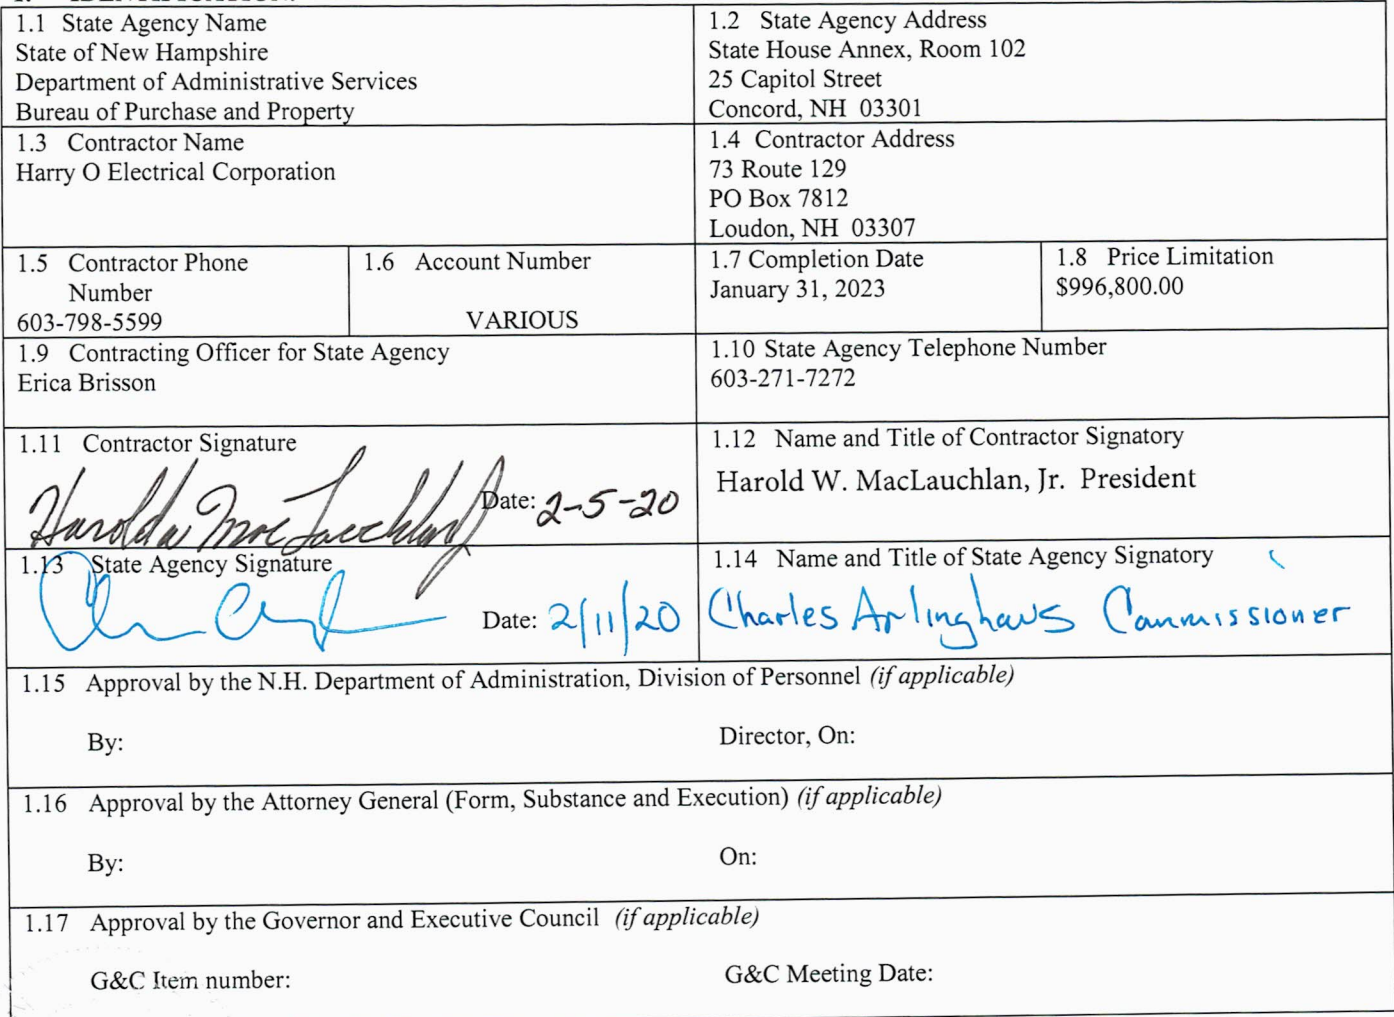 1.1 State Agency Name
State of New Hampshire
Department of Administrative Services
Bureau of Purchase and Property
1.2 State Agency Address
State House Annex, Room 102
25 Capitol Street
Concord, NH 03301
1.3 Contractor Name
Harry O Electrical Corporation
1.4 Contractor Address
73 Route 129
PO Box 7812
Loudon, NH 03307
1.5 Contractor Phone
Number
603-798-5599
1.6 Account Number
VARIOUS
1.7 Completion Date
January 31, 2023
1.8 Price Limitation
$996,800.00
1.9 Contracting Officer for State Agency
Erica Brisson
1.10 State Agency Telephone Number
603-271-7272
1.11 Contractor Signature
Date: 2-5-20
1.12 Name and Title of Contractor Signatory
Harold W. MacLauchlan, Jr. President
1.13 State Agency Signature
Date: 2/11/20
1.14 Name and Title of State Agency Signatory
Charles Arlinghaus Commissioner
1.15 Approval by the N.H. Department of Administration, Division of Personnel (if applicable)
By: Director, On:
1.16 Approval by the Attorney General (Form, Substance and Execution) (if applicable)
By: On:
1.17 Approval by the Governor and Executive Council (if applicable)
G&C Item number: G&C Meeting Date: